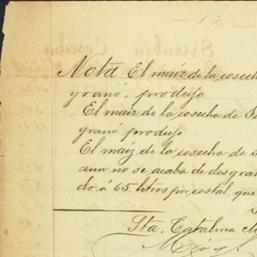 Nota. El maiz de la cosecha
granó, produjo
El maiz de la cosecha de
granó produjo
El maiz de la cosecha de
aun no se acaba de desgra
do á 65 litros por costal, que
Sta. Catalina